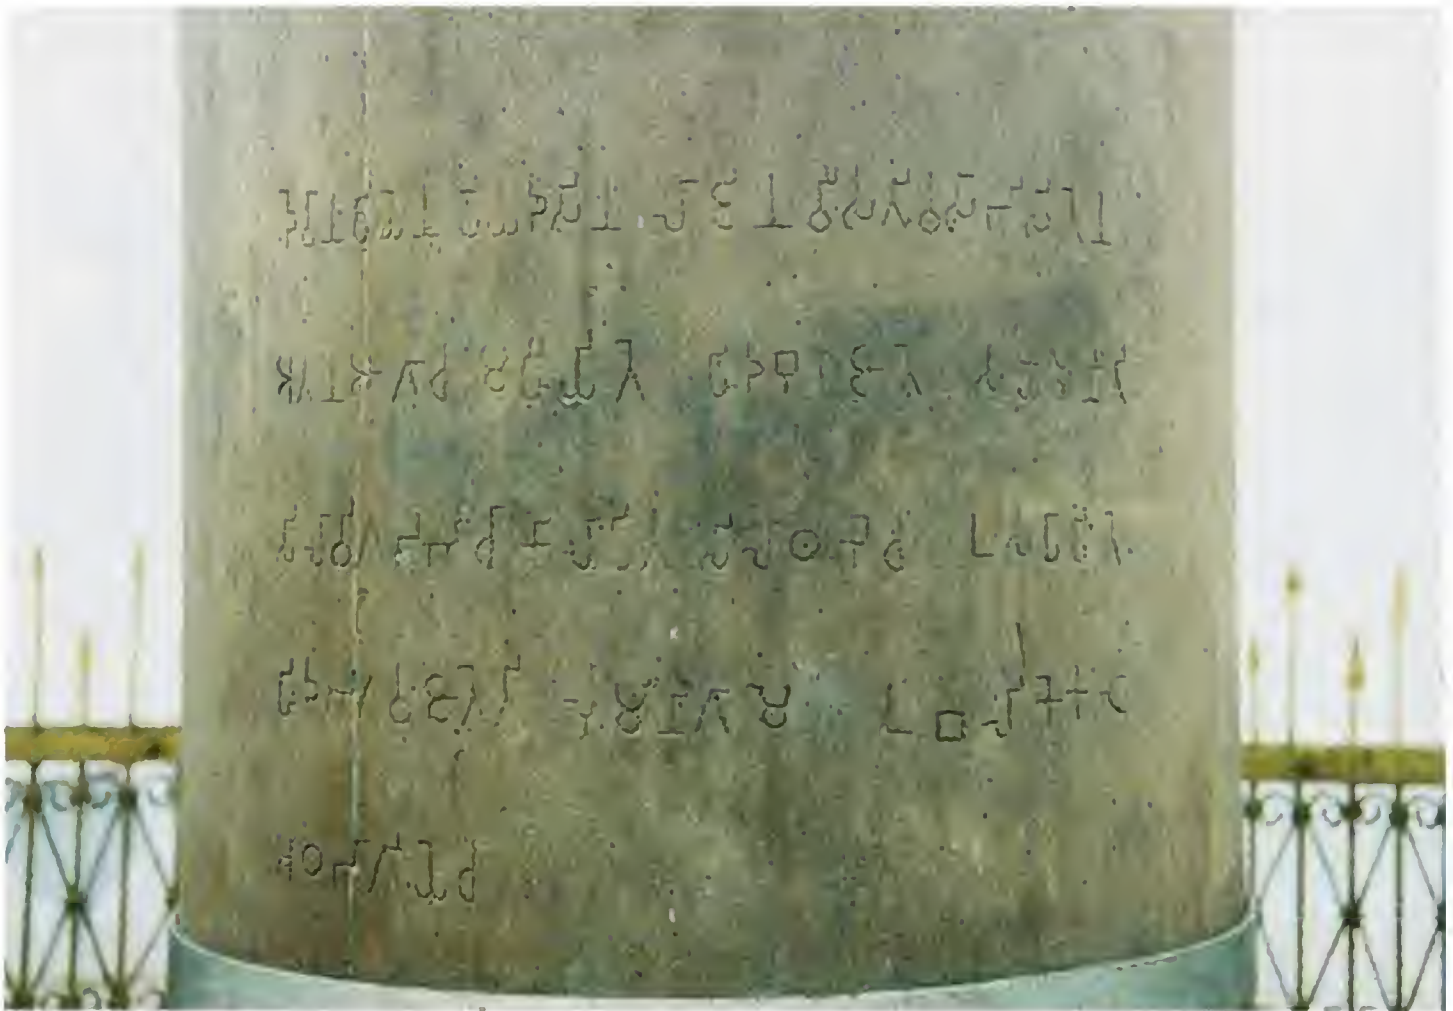 𑀤𑁂𑀯𑀸𑀦𑀁𑀧𑀺𑀬𑁂𑀦 𑀧𑀺𑀬𑀤𑀲𑀺𑀦 𑀮𑀸𑀚𑀺𑀦 𑀯𑀻𑀲𑀢𑀺𑀯𑀲𑀸𑀪𑀺𑀲𑀺𑀢𑁂𑀦
𑀅𑀢𑀦 𑀆𑀕𑀸𑀘 𑀫𑀳𑀻𑀬𑀺𑀢𑁂 𑀳𑀺𑀤 𑀩𑀼𑀥𑁂 𑀚𑀸𑀢𑁂 𑀲𑀓𑁆𑀬𑀫𑀼𑀦𑀻 𑀢𑀺
𑀲𑀺𑀮𑀸 𑀯𑀺𑀕𑀥𑀪𑀺 𑀘𑀸 𑀓𑀸𑀮𑀸𑀧𑀺𑀢 𑀲𑀺𑀮𑀸𑀣𑀪𑁂 𑀘 𑀉𑀲𑀧𑀸𑀧𑀺𑀢𑁂
𑀳𑀺𑀤 𑀪𑀕𑀯𑀁 𑀚𑀸𑀢𑁂 𑀢𑀺 𑀮𑀼𑀁𑀫𑀺𑀦𑀺 𑀕𑀸𑀫𑁂 𑀉𑀩𑀮𑀺𑀓𑁂 𑀓𑀝𑁂
𑀅𑀞𑀪𑀸𑀕𑀺𑀬𑁂 𑀘